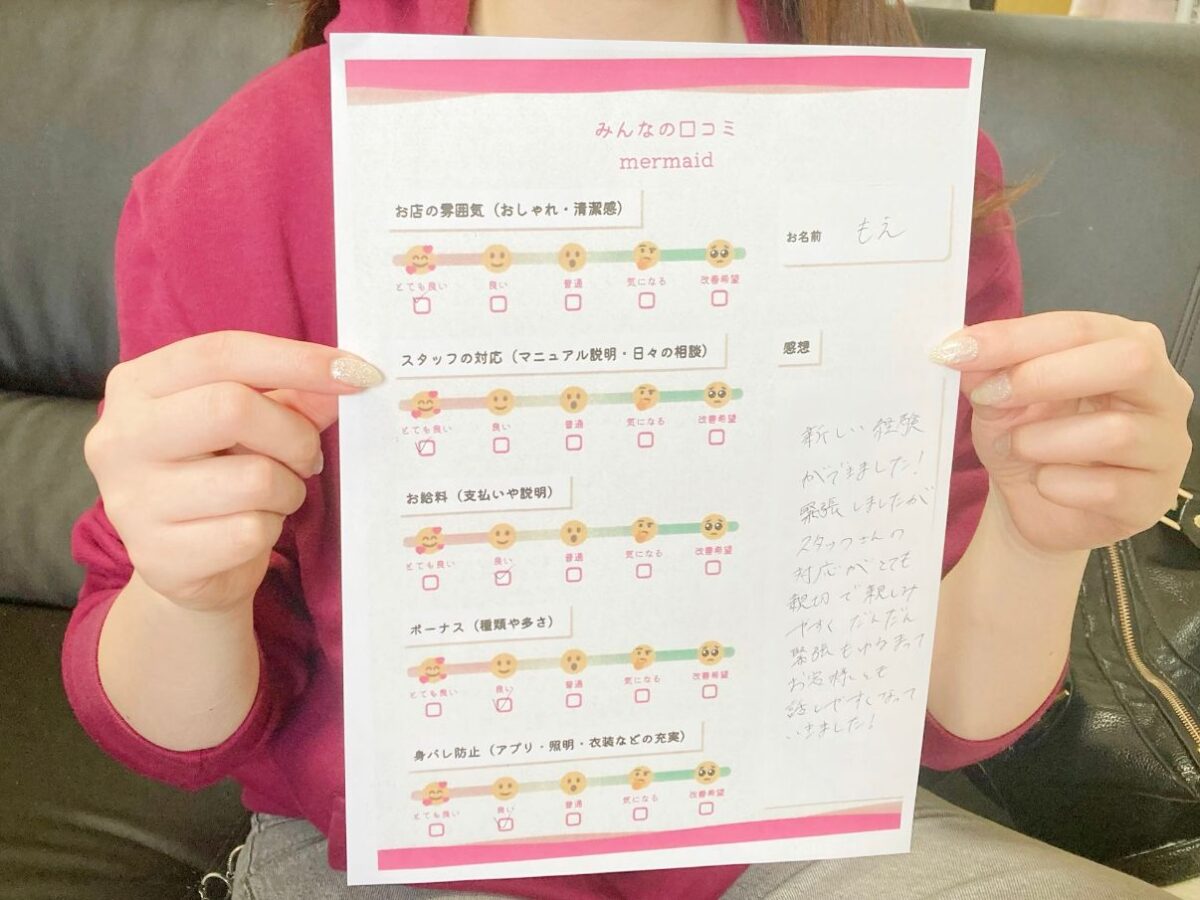 みんなの口コミ
mermaid
お店の雰囲気（おしゃれ・清潔感）
とても良い 良い 普通 気になる 改善希望
スタッフの対応（マニュアル説明・日々の相談）
とても良い 良い 普通 気になる 改善希望
お給料（支払いや説明）
とても良い 良い 普通 気になる 改善希望
ボーナス（種類や多さ）
とても良い 良い 普通 気になる 改善希望
身バレ防止（アプリ・照明・衣装などの充実）
とても良い 良い 普通 気になる 改善希望
お名前 もえ
感想
新しい経験
ができました!
緊張しましたが
スタッフさんの
対応がとても
親切で親しみ
やすくだんだん
緊張もゆるまって
お客様とも
話しやすくなって
いきました!